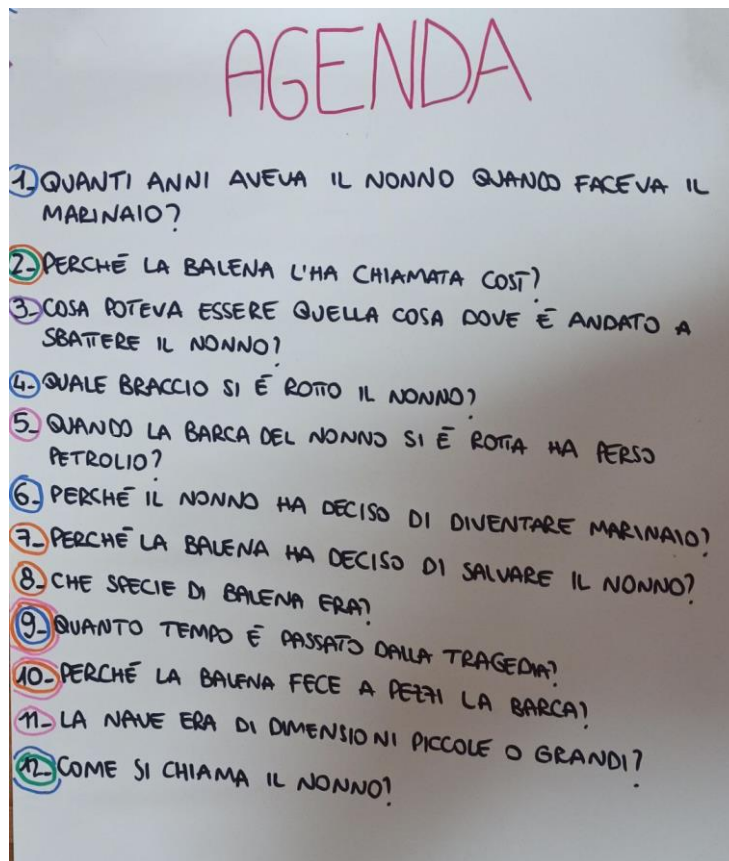 AGENDA
1- QUANTI ANNI AVEVA IL NONNO QUANDO FACEVA IL
MARINAIO?
2- PERCHÉ LA BALENA L'HA CHIAMATA COSÌ?
3- COSA POTEVA ESSERE QUELLA COSA DOVE È ANDATO A
SBATTERE IL NONNO?
4- QUALE BRACCIO SI È ROTTO IL NONNO?
5- QUANDO LA BARCA DEL NONNO SI È ROTTA HA PERSO
PETROLIO?
6- PERCHÉ IL NONNO HA DECISO DI DIVENTARE MARINAIO?
7- PERCHÉ LA BALENA HA DECISO DI SALVARE IL NONNO?
8- CHE SPECIE DI BALENA ERA?
9- QUANTO TEMPO È PASSATO DALLA TRAGEDIA?
10- PERCHÉ LA BALENA FECE A PEZZI LA BARCA?
11- LA NAVE ERA DI DIMENSIONI PICCOLE O GRANDI?
12- COME SI CHIAMA IL NONNO?